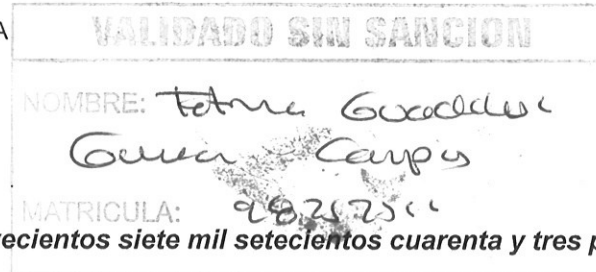 A
VALIDADO SIN SANCION
NOMBRE: Fatima Guadalupe
Garcia Campos
MATRICULA:
ecientos siete mil setecientos cuarenta y tres p